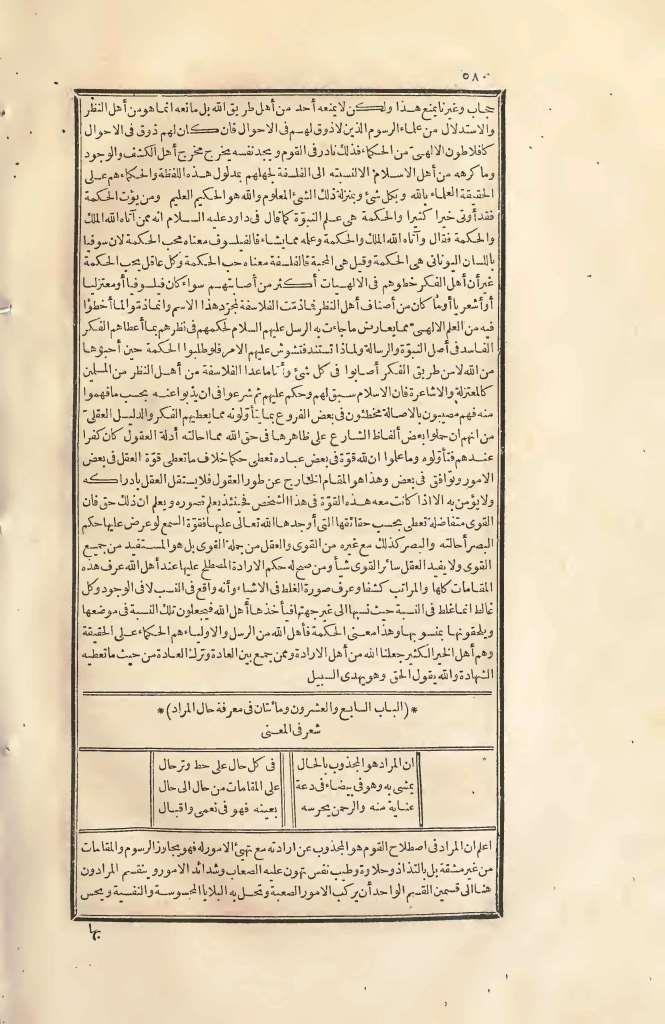 ٥٨٠
حجاب وغيرنا يمنع هذا ولكن لا يمنعه أحد من أهل طريق الله بل مانعه انما هو من أهل النظر
والاستدلال من علماء الرسوم الذين لا ذوق لهم في الاحوال فان كان لهم ذوق في الاحوال
كافلاطون الالهى من الحكماء فذلك نادر في القوم ويجد نفسه يخرج مخرج أهل الكشف والوجود
وما كرهه من أهل الاسلام الا لنسبته الى الفلسفة لجهلهم بمدلول هذه اللفظة والحكماء هم على
الحقيقة العلماء بالله وبكل شئ وبمنزلة ذلك الشئ المعلوم والله هو الحكيم العليم ومن يؤت الحكمة
فقد أوتى خيرا كثيرا والحكمة هى علم النبوّة كما قال في داود عليه السلام انه ممن آتاه الله الملك
والحكمة فقال وآتاه الله الملك والحكمة وعلمه مما يشاء فالفيلسوف معناه محب الحكمة لان سوفيا
باللسان اليونانى هى الحكمة وقيل هى المحبة فالفلسفة معناه حب الحكمة وكل عاقل يحب الحكمة
غير أن أهل الفكر خطؤهم في الالهيات أكثر من أصابتهم سواء كان فيلسوفيا أو معتزليا
أو أشعريا أو ما كان من أصناف أهل النظر فما ذمت الفلاسفة لمجرّد هذا الاسم وانما ذمّوا لما أخطؤا
فيه من العلم الالهىّ مما يعارض ما جاءت به الرسل عليهم السلام لحكمهم في نظرهم بما أعطاهم الفكر
الفاسد في أصل النبوّة والرسالة ولماذا تستند فتشوش عليهم الامر فلو طلبوا الحكمة حين أحبوها
من الله لا من طريق الفكر أصابوا فى كل شئ وأما ما عدا الفلاسفة من أهل النظر من المسلمين
كالمعتزلة والاشاعرة فان الاسلام سبق لهم وحكم عليهم ثم شرعوا فى ان يذبوا عنه بحسب ما فهموا
منه فهم مصيبون بالاصالة مخطئون فى بعض الفروع بما يتأوّلونه مما يعطيهم الفكر والدليل العقلىّ
من انهم ان حملوا بعض ألفاظ الشارع على ظاهرها فى حق الله مما احالته أدلة العقول كان كفرا
عندهم فتأوّلوه وما علموا ان لله قوّة فى بعض عباده تعطى حكما خلاف ما تعطى قوّة العقل فى بعض
الامور وتوافق فى بعض وهذا هو المقام الخارج عن طور العقول فلا يستقل العقل بادراكه
ولا يؤمن به الا اذا كانت معه هذه القوّة فى هذا الشخص فحينئذ يعلم قصوره ويعلم ان ذلك حق فان
القوى متفاضلة تعطى بحسب حقائقها التى أوجدها الله تعالى عليها فقوّة السمع لو عرض عليها حكم
البصر أحالته والبصر كذلك مع غيره من القوى والعقل من جملة القوى بل هو المستفيد من جميع
القوى ولا يفيد العقل سائر القوى شيأ ومن صح له حكم الارادة المصطلح عليها عند أهل الله عرف هذه
المقامات كلها والمراتب كشفا وعرف صورة الغلط فى الاشياء وأنه واقع فى النسب لا فى الوجود وكل
غالط انما غلط فى النسبة حيث نسبها الى غير جهتها فيأخذها أهل الله فيجعلون تلك النسبة فى موضعها
ويلحقونها بمنسوبها وهذا معنى الحكمة فأهل الله من الرسل والاولياء هم الحكماء على الحقيقة
وهم أهل الخير الكثير جعلنا الله من أهل الارادة وممن جمع بين العادة وترك العادة من حيث ما تعطيه
الشهادة والله يقول الحق وهو يهدى السبيل
* (الباب السابع والعشرون ومائتان فى معرفة حال المراد) *
شعر فى المعنى
ان المراد هو المجذوب بالحال فى كل حال على حط وترحال
يمشى به وهو فى بيضاء فى دعة على المقامات من حال الى حال
عناية منه والرحمن يحرسه بعينه فهو فى نعمى واقبال
اعلم ان المراد فى اصطلاح القوم هو المجذوب عن ارادته مع تهيئ الامور له فهو يجاوز الرسوم والمقامات
من غير مشقة بل بالتذاذ وحلاوة وطيب نفس تهون عليه الصعاب وشدائد الامور وينقسم المرادون
هنا الى قسمين القسم الواحد أن يركب الامور الصعبة وتحل به البلايا المحسوسة والنفسية ويحس
بها